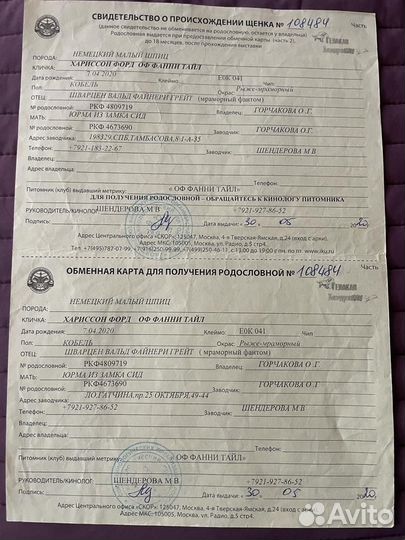 СВИДЕТЕЛЬСТВО О ПРОИСХОЖДЕНИИ ЩЕНКА № 108484 Часть
(данное свидетельство не обменивается на родословную, остается у владельца)
Родословная выдается при предоставлении обменной карты (часть 2),
до 18 месяцев, после прохождения выставки
ПОРОДА: НЕМЕЦКИЙ МАЛЫЙ ШПИЦ
КЛИЧКА: ХАРИССОН ФОРД ОФ ФАННИ ТАЙЛ
Дата рождения: 7.04.2020 Клеймо: E0K 041 Чип
Пол: КОБЕЛЬ Окрас: Рыже-мраморный
ОТЕЦ: ШВАРЦЕН ВАЛЬД ФАЙНЕРИ ГРЕЙТ (мраморный фактом)
№ родословной: РКФ 4809719 Заводчик: ГОРЧАКОВА О.Г.
МАТЬ: ЮРМА ИЗ ЗАМКА СИД
№ родословной: РКФ 4673690 Владелец: ГОРЧАКОВА О.Г.
Адрес заводчика: 198329,СПБ,ТАМБАСОВА,8-1-А-35
Телефон: +7921-183-22-67 Заводчик: ШЕНДЕРОВА М В
Владелец:
Адрес владельца:
Телефон:
Питомник (клуб) выдавший метрику: "ОФ ФАННИ ТАЙЛ"
ДЛЯ ПОЛУЧЕНИЯ РОДОСЛОВНОЙ - ОБРАЩАЙТЕСЬ К КИНОЛОГУ ПИТОМНИКА
РУКОВОДИТЕЛЬ/КИНОЛОГ ШЕНДЕРОВА М В +7921-927-86-52
Подпись: Дата выдачи: «30» 05 2020
Адрес Центрального офиса «СКОР»: 125047, Москва, 4-я Тверская-Ямская, д.24 (вход с арки).
Адрес МКС: 105005, Москва, ул. Радио, д.5 стр4.
ОБМЕННАЯ КАРТА ДЛЯ ПОЛУЧЕНИЯ РОДОСЛОВНОЙ № 108484 Часть
ПОРОДА: НЕМЕЦКИЙ МАЛЫЙ ШПИЦ
КЛИЧКА: ХАРИССОН ФОРД ОФ ФАННИ ТАЙЛ
Дата рождения: 7.04.2020 Клеймо: E0K 041 Чип
Пол: КОБЕЛЬ Окрас: Рыже-мраморный
ОТЕЦ: ШВАРЦЕН ВАЛЬД ФАЙНЕРИ ГРЕЙТ ( мраморный фактом)
№ родословной: РКФ4809719 ГОРЧАКОВА О .Г.
МАТЬ: ЮРМА ИЗ ЗАМКА СИД
№ родословной: РКФ4673690 ГОРЧАКОВА О .Г.
Адрес заводчика: ЛО.ГАТЧИНА,пр.25 ОКТЯБРЯ,49-44
Телефон: +7921-927-86-52 Заводчик: ШЕНДЕРОВА М В
Владелец:
Адрес владельца:
Телефон:
Питомник (клуб) выдавший метрику: "ОФ ФАННИ ТАЙЛ"
РУКОВОДИТЕЛЬ/КИНОЛОГ ШЕНДЕРОВА М В +7921-927-86-52
Подпись: Дата выдачи: «30» 05 2020
Адрес Центрального офиса «СКОР»: 125047, Москва, 4-я Тверская-Ямская, д.24 (вход с арки)
Адрес МКС: 105005, Москва, ул. Радио, д.5 стр4.
Avito